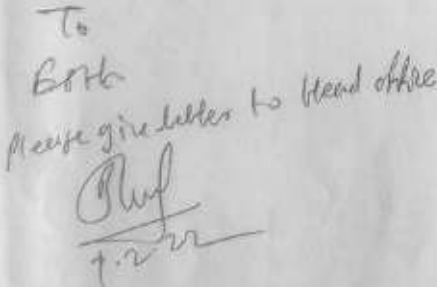 To
Both
Please give letter to Head office
7.2.22